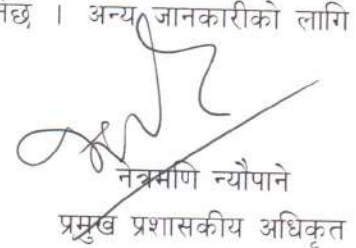 नेछ । अन्य जानकारीको लागि
नेत्रमणि न्यौपाने
प्रमुख प्रशासकीय अधिकृत